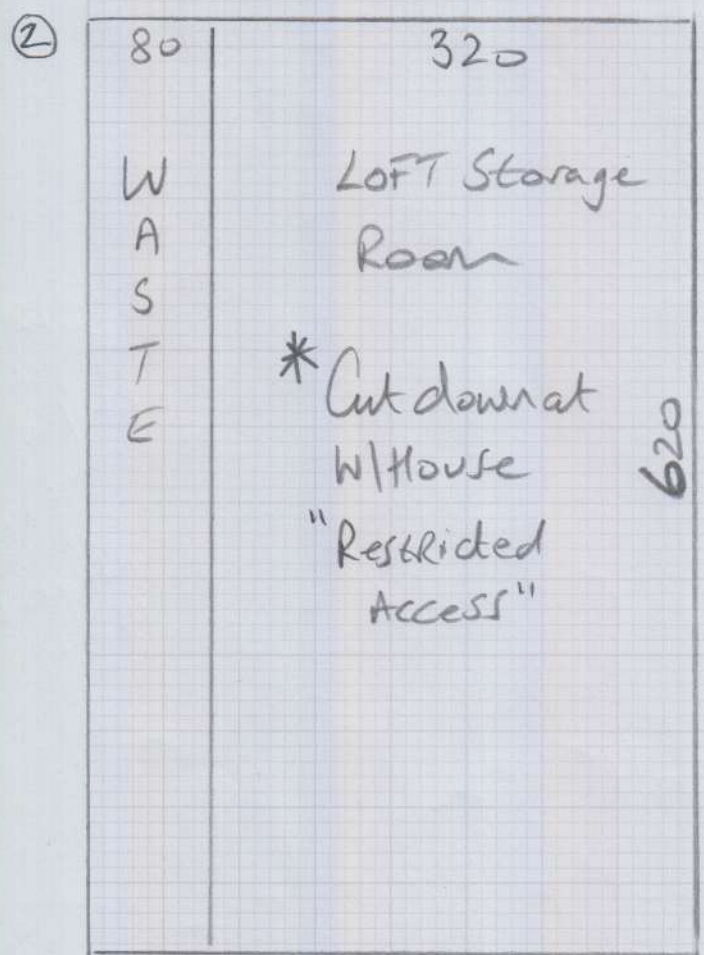 ②
80 320
W
A
S
T
E
LOFT Storage
Room
* Cut down at
W/House
"Restricted
Access"
620